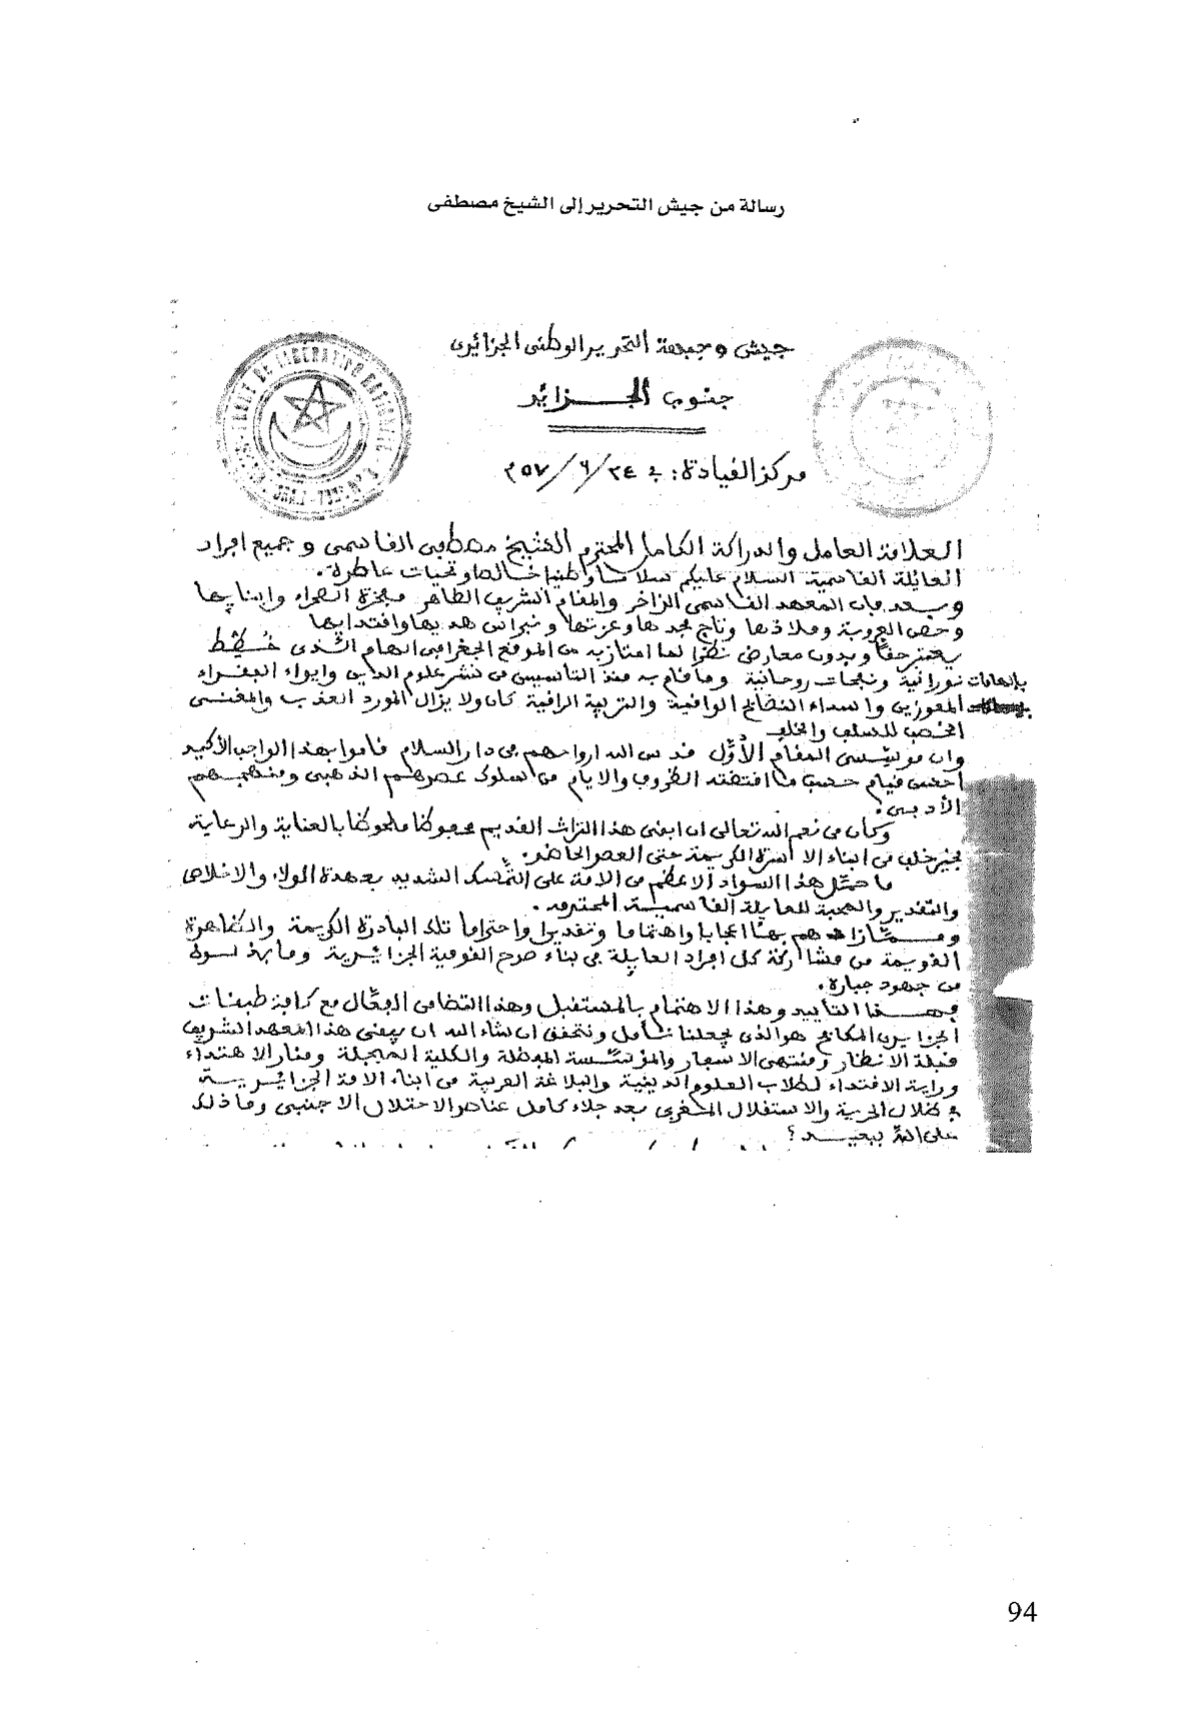 رسالة من جيش التحرير إلى الشيخ مصطفى
جيش وجبهة التحرير الوطني الجزائري
جنوب الجزائر
مركز القيادة: في ٢٤/٦/٩٥٧
العلامة العامل والدراكة الكامل المحترم الشيخ مصطفى القاسمي وجميع افراد
العائلة القاسمية السلام عليكم سلاما وطنيا خالصا وتحيات عاطرة.
وبعد فإن المعهد القاسمي الزاخر والمقام الشريف الطاهر مفخرة الصحراء وابنائها
وحصن العروبة وملاذها وتاج مجدها وعزتها ونبراس هديها واقتدائها
يعتبر حقا وبدون معارض نظرا لما امتاز به من الموقع الجغرافي الهام الذي
نورانية ونفحات روحانية وما قام به منذ التأسيس من نشر علوم الدين وايواء الفقراء
المعوزين واسداء النصائح الوافية والتربية الراقية كان ولا يزال المورد العذب والمغنى
الخصب للسلف والخلف
وان مؤسسي المقام الأول قدس الله ارواحهم في دار السلام قاموا بهذا الواجب الأكيد
احسن قيام حسب ما اقتضته الظروف والايام من سلوك عصرهم الذهبي ومذهبهم
الأدبي.
وكان من نعم الله تعالى ان ابقى هذا التراث القديم محفوظا ملحوظا بالعناية والرعاية
بخير خلف من ابناء الاسرة الكريمة حتى العصر الحاضر.
ما حمل هذا السواد الاعظم من الامة على التمسك الشديد بعهدة الولاء والاخلاص
والتقدير والمحبة للعايلة القاسمية المحترمة.
ومما زادهم بها اعجابا واهتماما وتقديرا واحتراما تلك البادرة الكريمة والظاهرة
القويمة من مشاركة كل افراد العايلة في بناء صرح القومية الجزائرية وما بذلوه
من جهود جبارة.
فهذا التأييد وهذا الاهتمام بالمستقبل وهذا التضامن الفعال مع كافة طبقات
الجزايري المكافح هو الذي يجعلنا نأمل ونتحقق ان شاء الله ان يبقى هذا المعهد الشريف
قبلة الانظار ومنتهى الاسفار والمؤسسة المفضلة والكلية المبجلة ومنار الاهتداء
وراية الاقتداء لطلاب العلوم الدينية والبلاغة العربية من ابناء الامة الجزائرية
في ظلال الحرية والاستقلال بعد جلاء كامل عناصر الاحتلال الاجنبي وما ذلك
على الله ببعيد؟
94